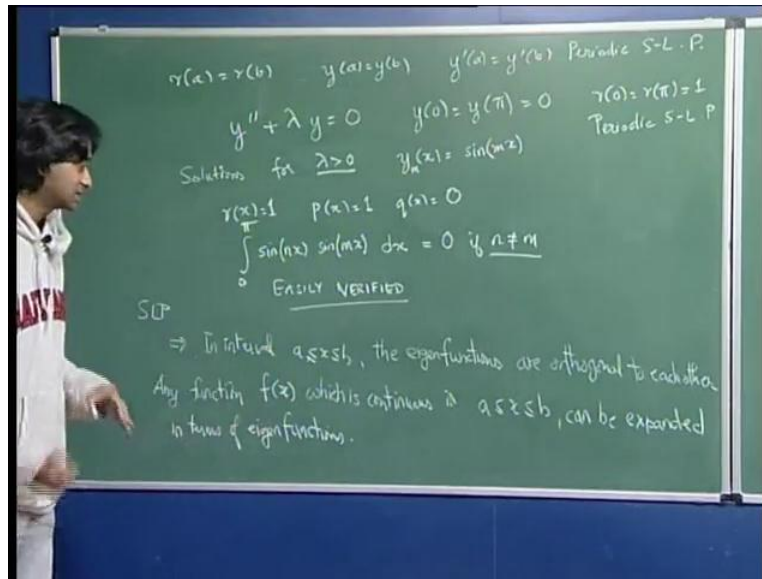 r(a) = r(b) y(a) = y(b) y'(a) = y'(b) Periodic S-L.P.
y'' + λ y = 0 y(0) = y(π) = 0 r(0) = r(π) = 1
Periodic S-L P
Solutions for λ>0 yₘ(x) = sin(mx)
r(x) = 1 p(x) = 1 q(x) = 0
∫₀^π sin(nx) sin(mx) dx = 0 if n ≠ m
EASILY VERIFIED
SLP
⇒ In interval a ≤ x ≤ b, the eigenfunctions are orthogonal to each other
Any function f(x) which is continuous is a ≤ x ≤ b, can be expanded
in terms of eigenfunctions.